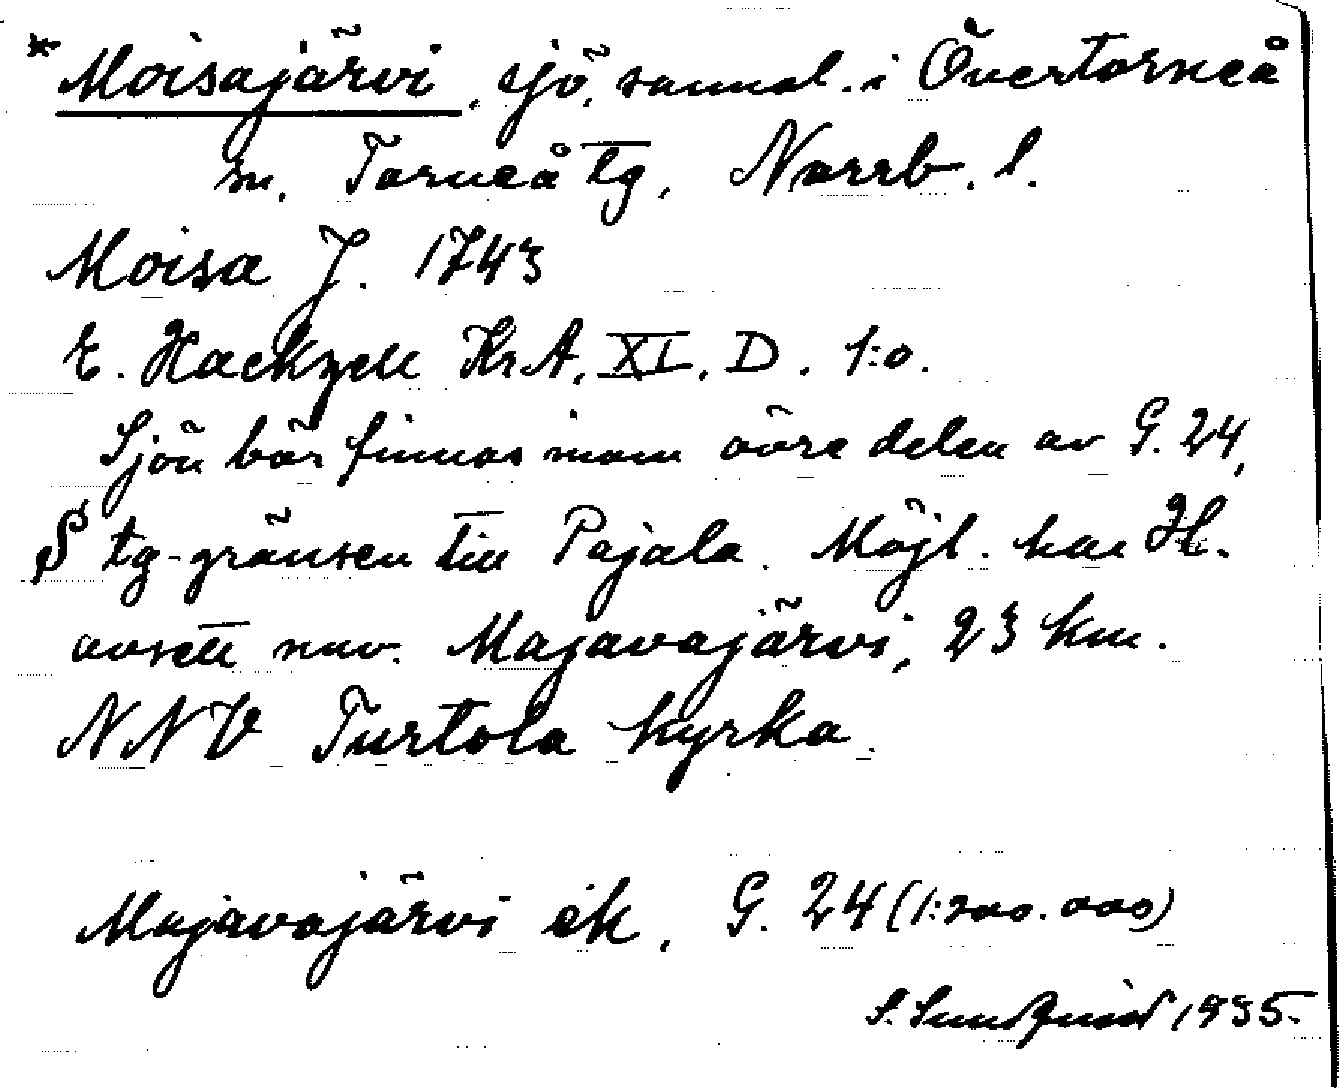 *Moisajärvi, sjö, sannol. i Övertorneå
sn. Torneå tg, Norrb. l.
Moisa J. 1743
E. Hackzell KrA. XI. D. 1:o.
Sjön bör finnas inom övre delen av G. 24,
§ tg-gränsen till Pajala. Möjl. har H.
avsett nuv. Majavajärvi, 23 km.
NNV Turtola kyrka.
Majavajärvi ek. G. 24 (1:200.000)
S. Sundqvist 1935.